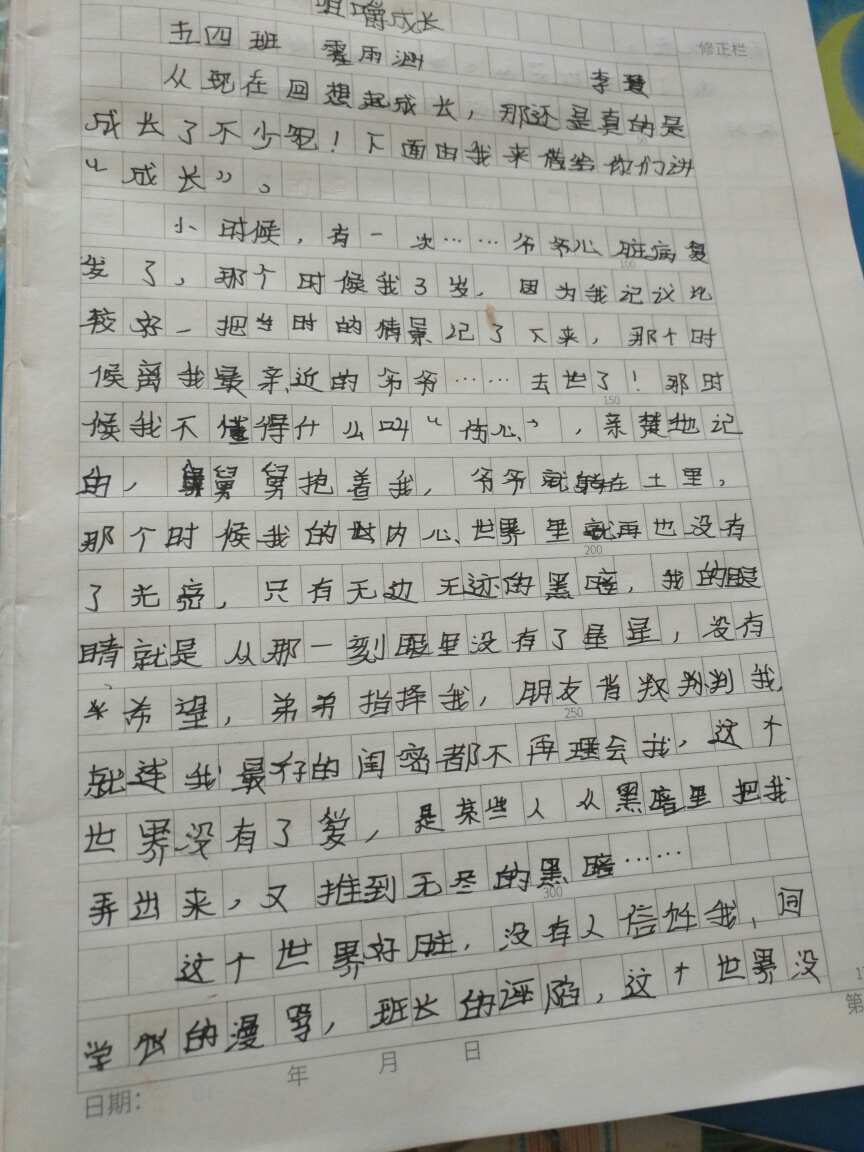 咀嚼成长
五四班 雨 李
修正栏
从现在回想起成长，那还是真的是
成长了不少呢！下面由我来给你们讲
“成长”。
小时候，有一次……爷爷心脏病复
发了，那个时候我3岁，因为我记议比
较好，把当时的情景记了下来，那个时
候离我最亲近的爷爷……去世了！那时
候我不懂得什么叫“伤心”，亲楚地记
的，舅舅抱着我，爷爷就躺在土里，
那个时候我的内心世界里就再也没有
了光亮，只有无边无迹的黑暗，我的眼
睛就是从那一刻眼里没有了星星，没有
希望，弟弟指择我，朋友背叛我，
就连我最好的闺密都不再理会我，这个
世界没有了爱，是某些人从黑暗里把我
弄出来，又推到无尽的黑暗……
这个世界好脏，没有人信任我，同
学的漫骂，班长的诬陷，这个世界没
100
150
200
250
300
日期： 年 月 日
第